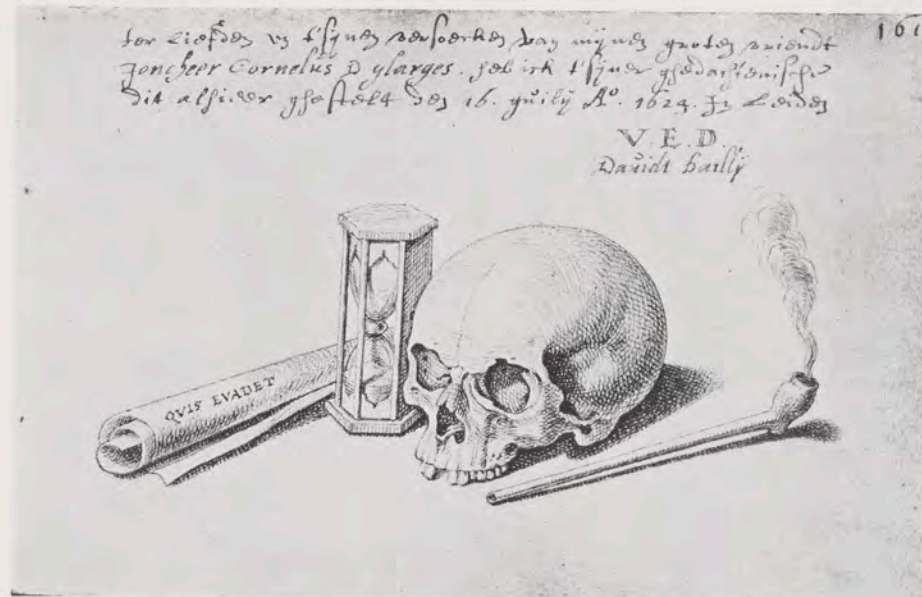 161
ter Liefden en t'sijnen versoecken van mijnen groten vriendt
Joncheer Cornelius D glarges. heb ick t'sijner ghedachtenische
dit alhier ghestelt den 16. Juilij Aº. 1624. In Leiden
V. E. D.
Davidt bailly
QVIS EVADET